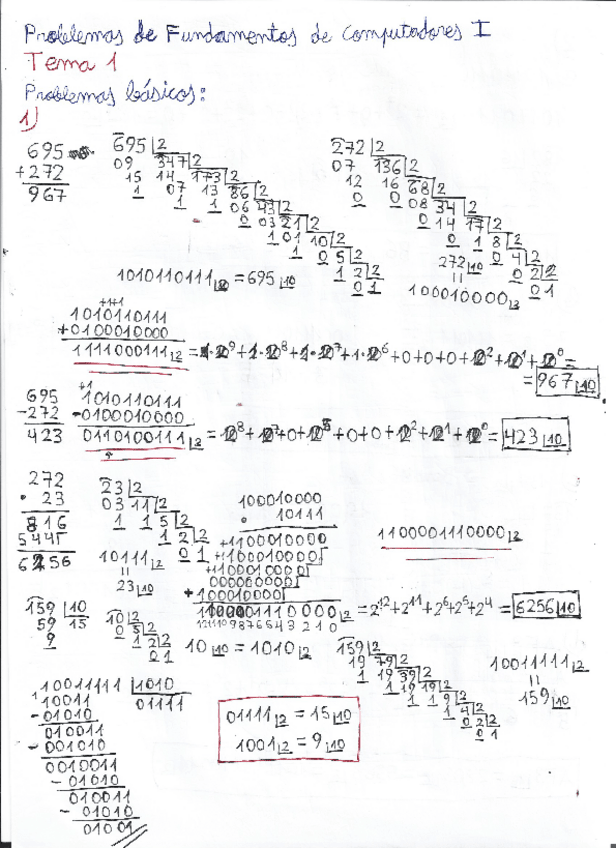 Problemas de Fundamentos de Computadores I
Tema 1
Problemas básicos:
1)
695
+272
967
695 |2
09 347 |2
15 14 173 |2
1 07 13 86 |2
1 1 06 43 |2
0 03 21 |2
1 01 10 |2
1 0 5 |2
1 2 |2
0 1
272 |2
07 136 |2
12 16 68 |2
0 0 08 34 |2
0 14 17 |2
0 1 8 |2
0 4 |2
0 2 |2
0 1
1010110111|2 = 695|10
272|10
=
100010000|2
+1+1
1010110111
+0100010000
1111000111|2 = 1·2⁹+1·2⁸+1·2⁷+1·2⁶+0+0+0+2²+2¹+2⁰=
= 967|10
695
-272
423
+1
1010110111
-0100010000
0110100111|2 = 2⁸+2⁷+0+2⁵+0+0+2²+2¹+2⁰= 423|10
272
· 23
816
544
6256
23 |2
03 11 |2
1 1 5 |2
1 2 |2
0 1
10111|2
=
23|10
100010000
· 10111
+1100010000
+1100010000
+100010000
000000000
+100010000
1100001110000|2 = 2¹²+2¹¹+2⁶+2⁵+2⁴ = 6256|10
1211109876543210
1100001110000|2
159 |10
59 15
9
10 |2
0 5 |2
1 2 |2
0 1
10|10 = 1010|2
159 |2
19 79 |2
1 19 39 |2
1 19 19 |2
1 1 9 |2
1 4 |2
0 2 |2
0 1
10011111|2
=
159|10
10011111 |1010
10011 01111
-01010
010011
-001010
0010011
-01010
010011
-01010
01001
01111|2 = 15|10
1001|2 = 9|10